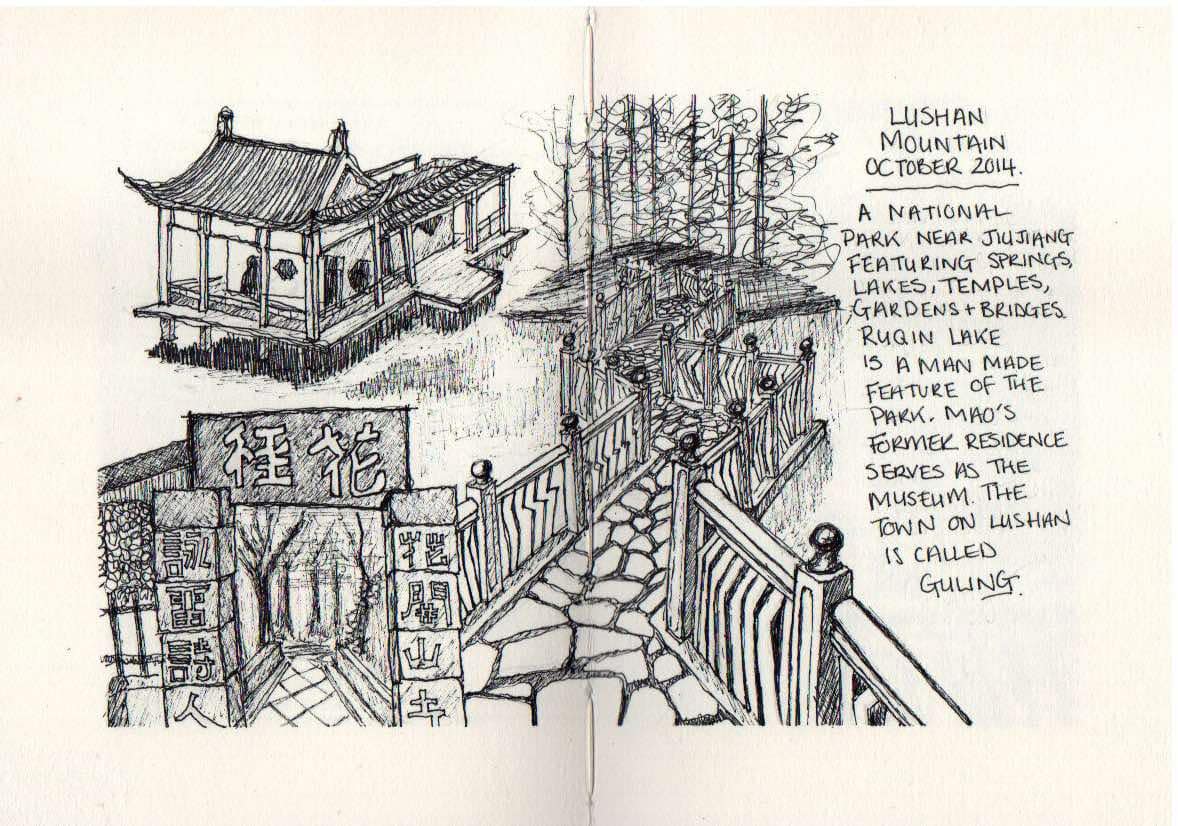 LUSHAN
MOUNTAIN
OCTOBER 2014.
A NATIONAL
PARK NEAR JIUJIANG
FEATURING SPRINGS,
LAKES, TEMPLES,
GARDENS + BRIDGES.
RUQIN LAKE
IS A MAN MADE
FEATURE OF THE
PARK. MAO'S
FORMER RESIDENCE
SERVES AS THE
MUSEUM. THE
TOWN ON LUSHAN
IS CALLED
GULING.
花徑
花開山寺
詠留詩人